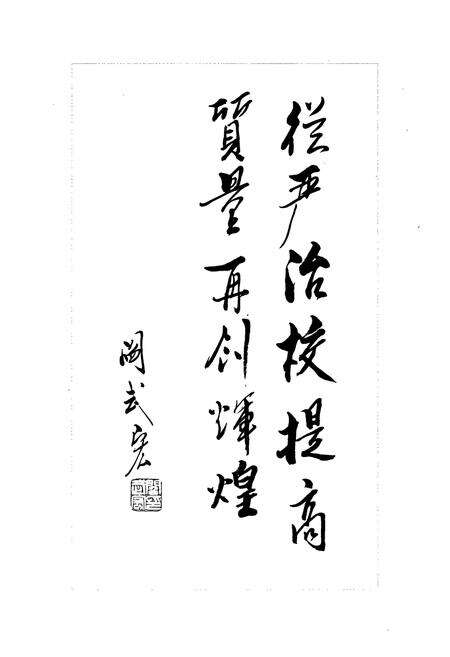 從严治校提高
質量再创煇煌
阎武宏